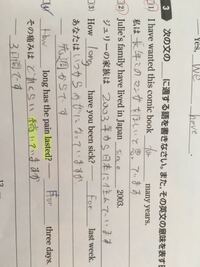 Yes, we have.
3 次の文の に適する語を書きなさい。また、その英文の意味を表す日
(1) I have wanted this comic book for many years.
私は長年このマンガがほしいと思っています
(2) Julie's family have lived in Japan 2003.
ジュリーの家族は2003年から日本に住んでいます
(3) How long have you been sick? For last week.
あなたは
先週からです
How long has the pain lasted? For three days.
その痛みはどれくらい続いていますか
3日間です